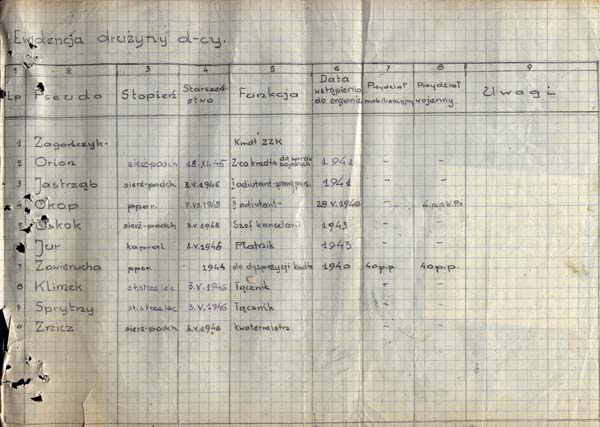 Ewidencja drużyny d-cy.
1 2 3 4 5 6 7 8 9
Lp Pseudo Stopień Starszeństwo Funkcja Data wstąpienia do organiz. Przydział mobilizacyjny Przydział wojenny Uwagi
1 Zagończyk. Kmdt ZZK
2 Orion sierż-podch 18.XI.45 Z-ca kmdta do spraw 1941 - -
3 Jastrząb sierż-podch. 3.V.1946 I adiutant 1941 - -
4 Okop ppor. adiutant- 28.V.1940 -
5 Uskok sierż-podch 3.V.1946 Szef kancelarii 1943 - -
Jur kapral 3.V.1946 Płatnik 1943 - -
7 Zawierucha ppor. 1944 do dyspozycji kmdta 1940 40p.p. 40p.p.
8 Klimek st.strzelec 3.V.1946 Łącznik - -
9 Sprytny st.strzelec 3.V.1946 Łącznik - -
0 Znicz sierż-podch 3.V.1946 kwatermistrz - -